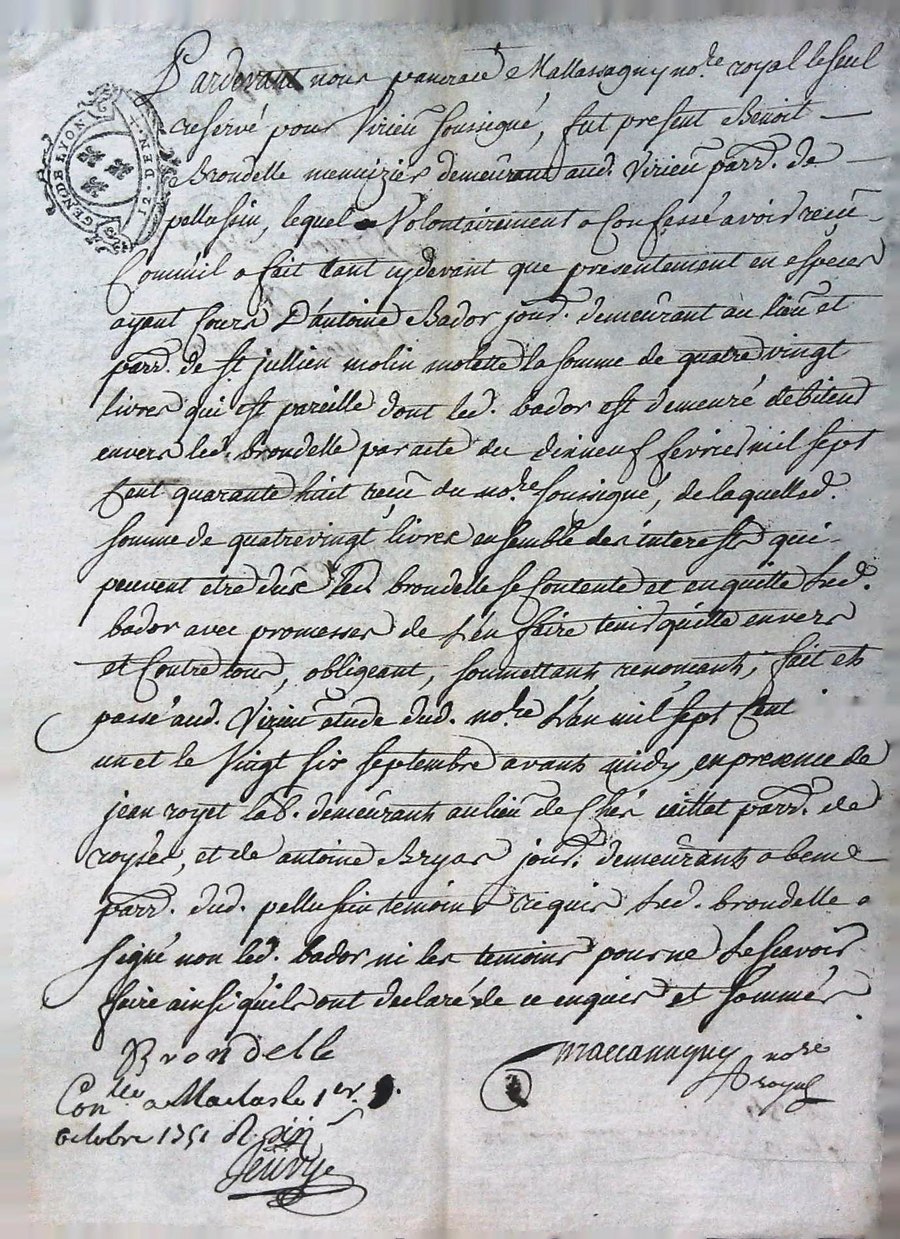 GEN. DE LYON
12. DEN.
Pardevant nous pancrace Mallassagny no.re royal le seul
reservé pour Virieu soussigné, fut present Benoit
Brondelle menuizier demeurant aud. Virieu parr. de
pellussin, lequel Volontairement a Confessé avoir reçu
Comme il a fait tant cydevant que presentement en especes
ayant Cours D'antoine Bador jour. demeurant au lieu et
parr. de St jullien molin molette la somme de quatre vingt
livres qui est pareille dont led. bador est demeuré debiteur
envers led. brondelle par acte du dixneuf fevrier mil sept
Cent quarante huit reçu du no.re soussigné, de laquelle d.
somme de quatre vingt livres ensemble des interests qui
peuvent etre dus led. brondelle se Contente et en quitte led.
bador avec promesses de L'en faire tenir quitte envers
et Contre tous, obligeant, soumettant, renoncant, fait et
passé aud. Virieu etude dud. no.re L'an mil sept Cent
un et le Vingt six septembre avant midy, en presence de
jean royet lab. demeurant au lieu de Chés parr. de
et de antoine jour. demeurant a
parr. dud. pellussin temoins requis Led. brondelle a
signé non led. bador ni les temoins pour ne Le scavoir
faire ainsi qu'ils ont declaré de ce enquis et sommés
Brondelle
no.re
royal
Con.llé a Maclas le 1er.
octobre 1751 R.